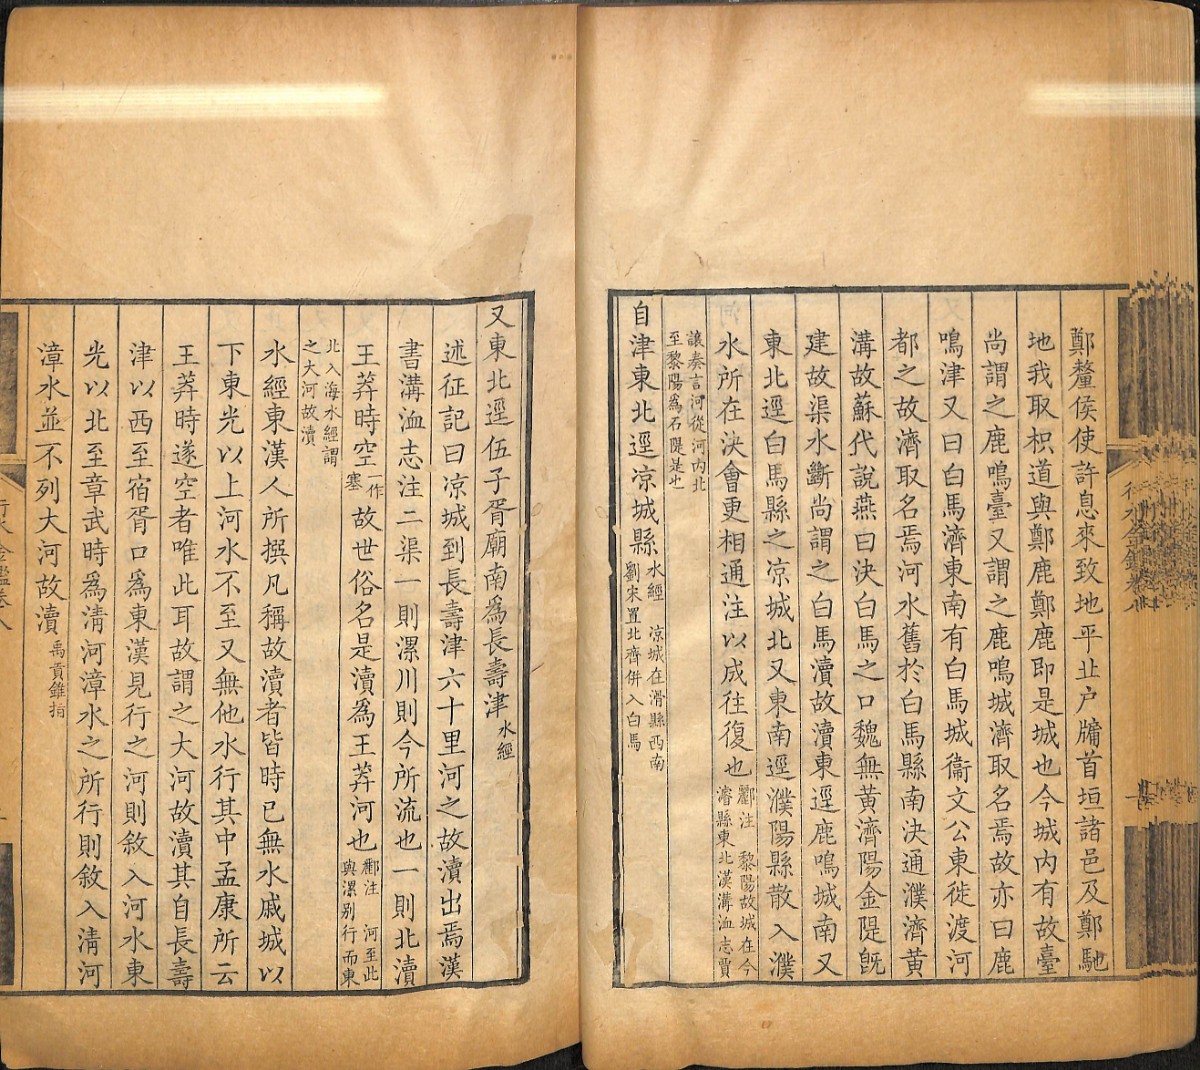 鄭釐侯使許息來致地平丘户牖首垣諸邑及鄭馳
地我取枳道與鄭鹿鄭鹿即是城也今城内有故臺
尚謂之鹿鳴臺又謂之鹿鳴城濟取名焉故亦曰鹿
鳴津又曰白馬濟東南有白馬城衞文公東徙渡河
都之故濟取名焉河水舊於白馬縣南決通濮濟黃
溝故蘇代說燕曰決白馬之口魏無黃濟陽金隄旣
建故渠水斷尚謂之白馬瀆故瀆東逕鹿鳴城南又
東北逕白馬縣之凉城北又東南逕濮陽縣散入濮
水所在決會更相通注以成往復也酈注 黎陽故城在今
濬縣東北漢溝洫志賈
讓奏言河從河内北
至黎陽爲石隄是也
自津東北逕凉城縣水經 凉城在滑縣西南
劉宋置北齊併入白馬
又東北逕伍子胥廟南爲長壽津水經
述征記曰凉城到長壽津六十里河之故瀆出焉漢
書溝洫志注二渠一則漯川則今所流也一則北瀆
王莽時空一作
塞故世俗名是瀆爲王莽河也酈注 河至此
與漯别行而東
北入海水經謂
之大河故瀆
水經東漢人所撰凡稱故瀆者皆時已無水戚城以
下東光以上河水不至又無他水行其中孟康所云
王莽時遂空者唯此耳故謂之大河故瀆其自長壽
津以西至宿胥口爲東漢見行之河則敘入河水東
光以北至章武時爲清河漳水之所行則敘入清河
漳水並不列大河故瀆禹貢錐指